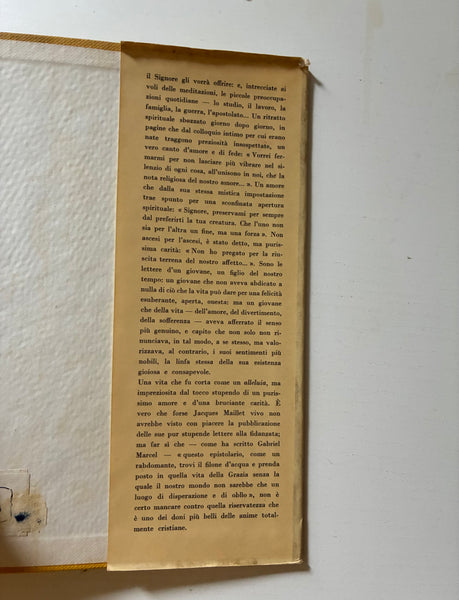 il Signore gli vorrà offrire: e, intrecciate ai
voli delle meditazioni, le piccole preoccupa-
zioni quotidiane — lo studio, il lavoro, la
famiglia, la guerra, l'apostolato... Un ritratto
spirituale sbozzato giorno dopo giorno, in
pagine che dal colloquio intimo per cui erano
nate traggono preziosità insospettate, un
vero canto d'amore e di fede: « Vorrei fer-
marmi per non lasciare più vibrare nel si-
lenzio di ogni cosa, all'unisono in noi, che la
nota religiosa del nostro amore... ». Un amore
che dalla sua stessa mistica impostazione
trae spunto per una sconfinata apertura
spirituale: « Signore, preservami per sempre
dal preferirti la tua creatura. Che l'uno non
sia per l'altra un fine, ma una forza ». Non
ascesi per l'ascesi, è stato detto, ma puris-
sima carità: « Non ho pregato per la riu-
scita terrena del nostro affetto... ». Sono le
lettere d'un giovane, un figlio del nostro
tempo: un giovane che non aveva abdicato a
nulla di ciò che la vita può dare per una felicità
esuberante, aperta, onesta: ma un giovane
che della vita — dell'amore, del divertimento,
della sofferenza — aveva afferrato il senso
più genuino, e capito che non solo non ri-
nunciava, in tal modo, a se stesso, ma valo-
rizzava, al contrario, i suoi sentimenti più
nobili, la linfa stessa della sua esistenza
gioiosa e consapevole.
Una vita che fu corta come un alleluia, ma
impreziosita dal tocco stupendo di un puris-
simo amore e d'una bruciante carità. È
vero che forse Jacques Maillet vivo non
avrebbe visto con piacere la pubblicazione
delle sue pur stupende lettere alla fidanzata;
ma far sì che — come ha scritto Gabriel
Marcel — « questo epistolario, come un
rabdomante, trovi il filone d'acqua e prenda
posto in quella vita della Grazia senza la
quale il nostro mondo non sarebbe che un
luogo di disperazione e di oblìo », non è
certo mancare contro quella riservatezza che
è uno dei doni più belli delle anime total-
mente cristiane.